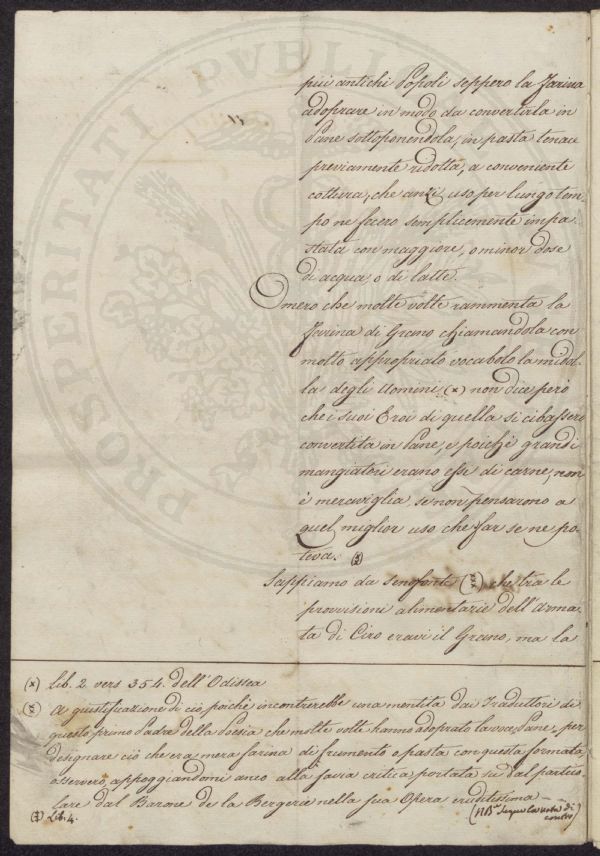 più antichi Popoli seppero la Farina
adoprare in modo da convertirla in
Pane sottoponendola, in pasta tenace
previamente ridotta, a conveniente
cottura, che anzi uso per lungo tem-
po ne fecero semplicemente impa-
stata con maggiore, o minor dose
di acqua, o di latte.
Omero che molte volte rammenta la
Farina di Grano chiamandola con
molto appropriato vocabolo la midol-
la degli Uomini (x) non dice però
che i suoi Eroi di quella si cibassero
convertita in Pane, e poichè grandi
mangiatori erano essi di carne, non
è meraviglia se non pensarono a
quel miglior uso che far se ne po-
teva.
Sappiamo da Senofonte (xxx) che tra le
provvisioni alimentarie dell'Arma-
ta di Ciro eravi il Grano, ma la
(x) Lib. 2. vers 354. dell'Odissea
A giustificazione di ciò poichè incontrerebbe una mentita dai Traduttori di
questo primo Padre della Poesia che molte volte hanno adoprato la voce Pane per
designare ciò che era mera farina di frumento o pasta con questa formata,
osservero, appoggiandomi anco alla savia critica portata su dal partico-
lare dal Barone de la Bergerie nella sua Opera eruditissima
(NBn. segue la nota di
contro)
Lib. 4.
PROSPERITATI PVBLI